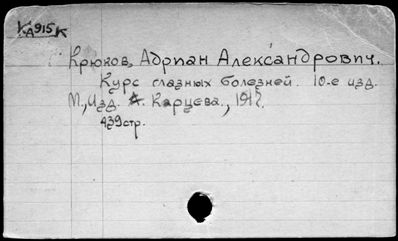 КА915К
Крюков, Адриан Александрович.
Курс глазных болезней. 10-е изд.
М., Изд. А. Карцева., 1912.
439стр.